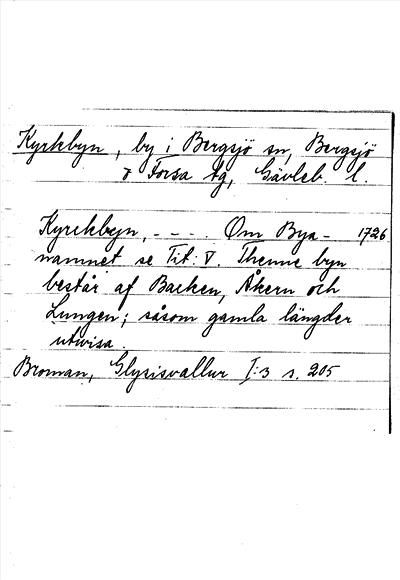 Kyrkbyn, by i Bergsjö sn, Bergsjö
o Forsa tg, Gävleb. l.
Kyrckbyn, - - - . Om Bya- 1726
namnet se Tit: V. Thenne byn
består af Backen, Åkern och
Lungen; såsom gamla längder
utwisa.
Broman, Glysisvallur I:3 s. 205